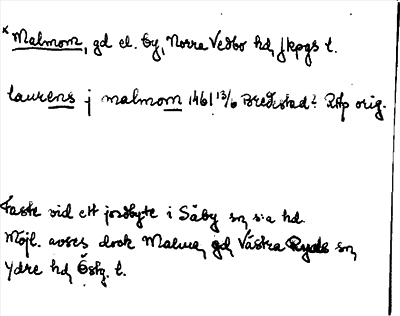 * Malmom, gd el. by, Norra Vedbo hd, Jkpgs l.
laurens j malmom 1461 13/6 Bredestad? RAp orig.
Faste vid ett jordbyte i Säby sn, s:a hd.
Möjl. avses dock Malma, gd, Västra Ryds sn,
Ydre hd, Östg. l.